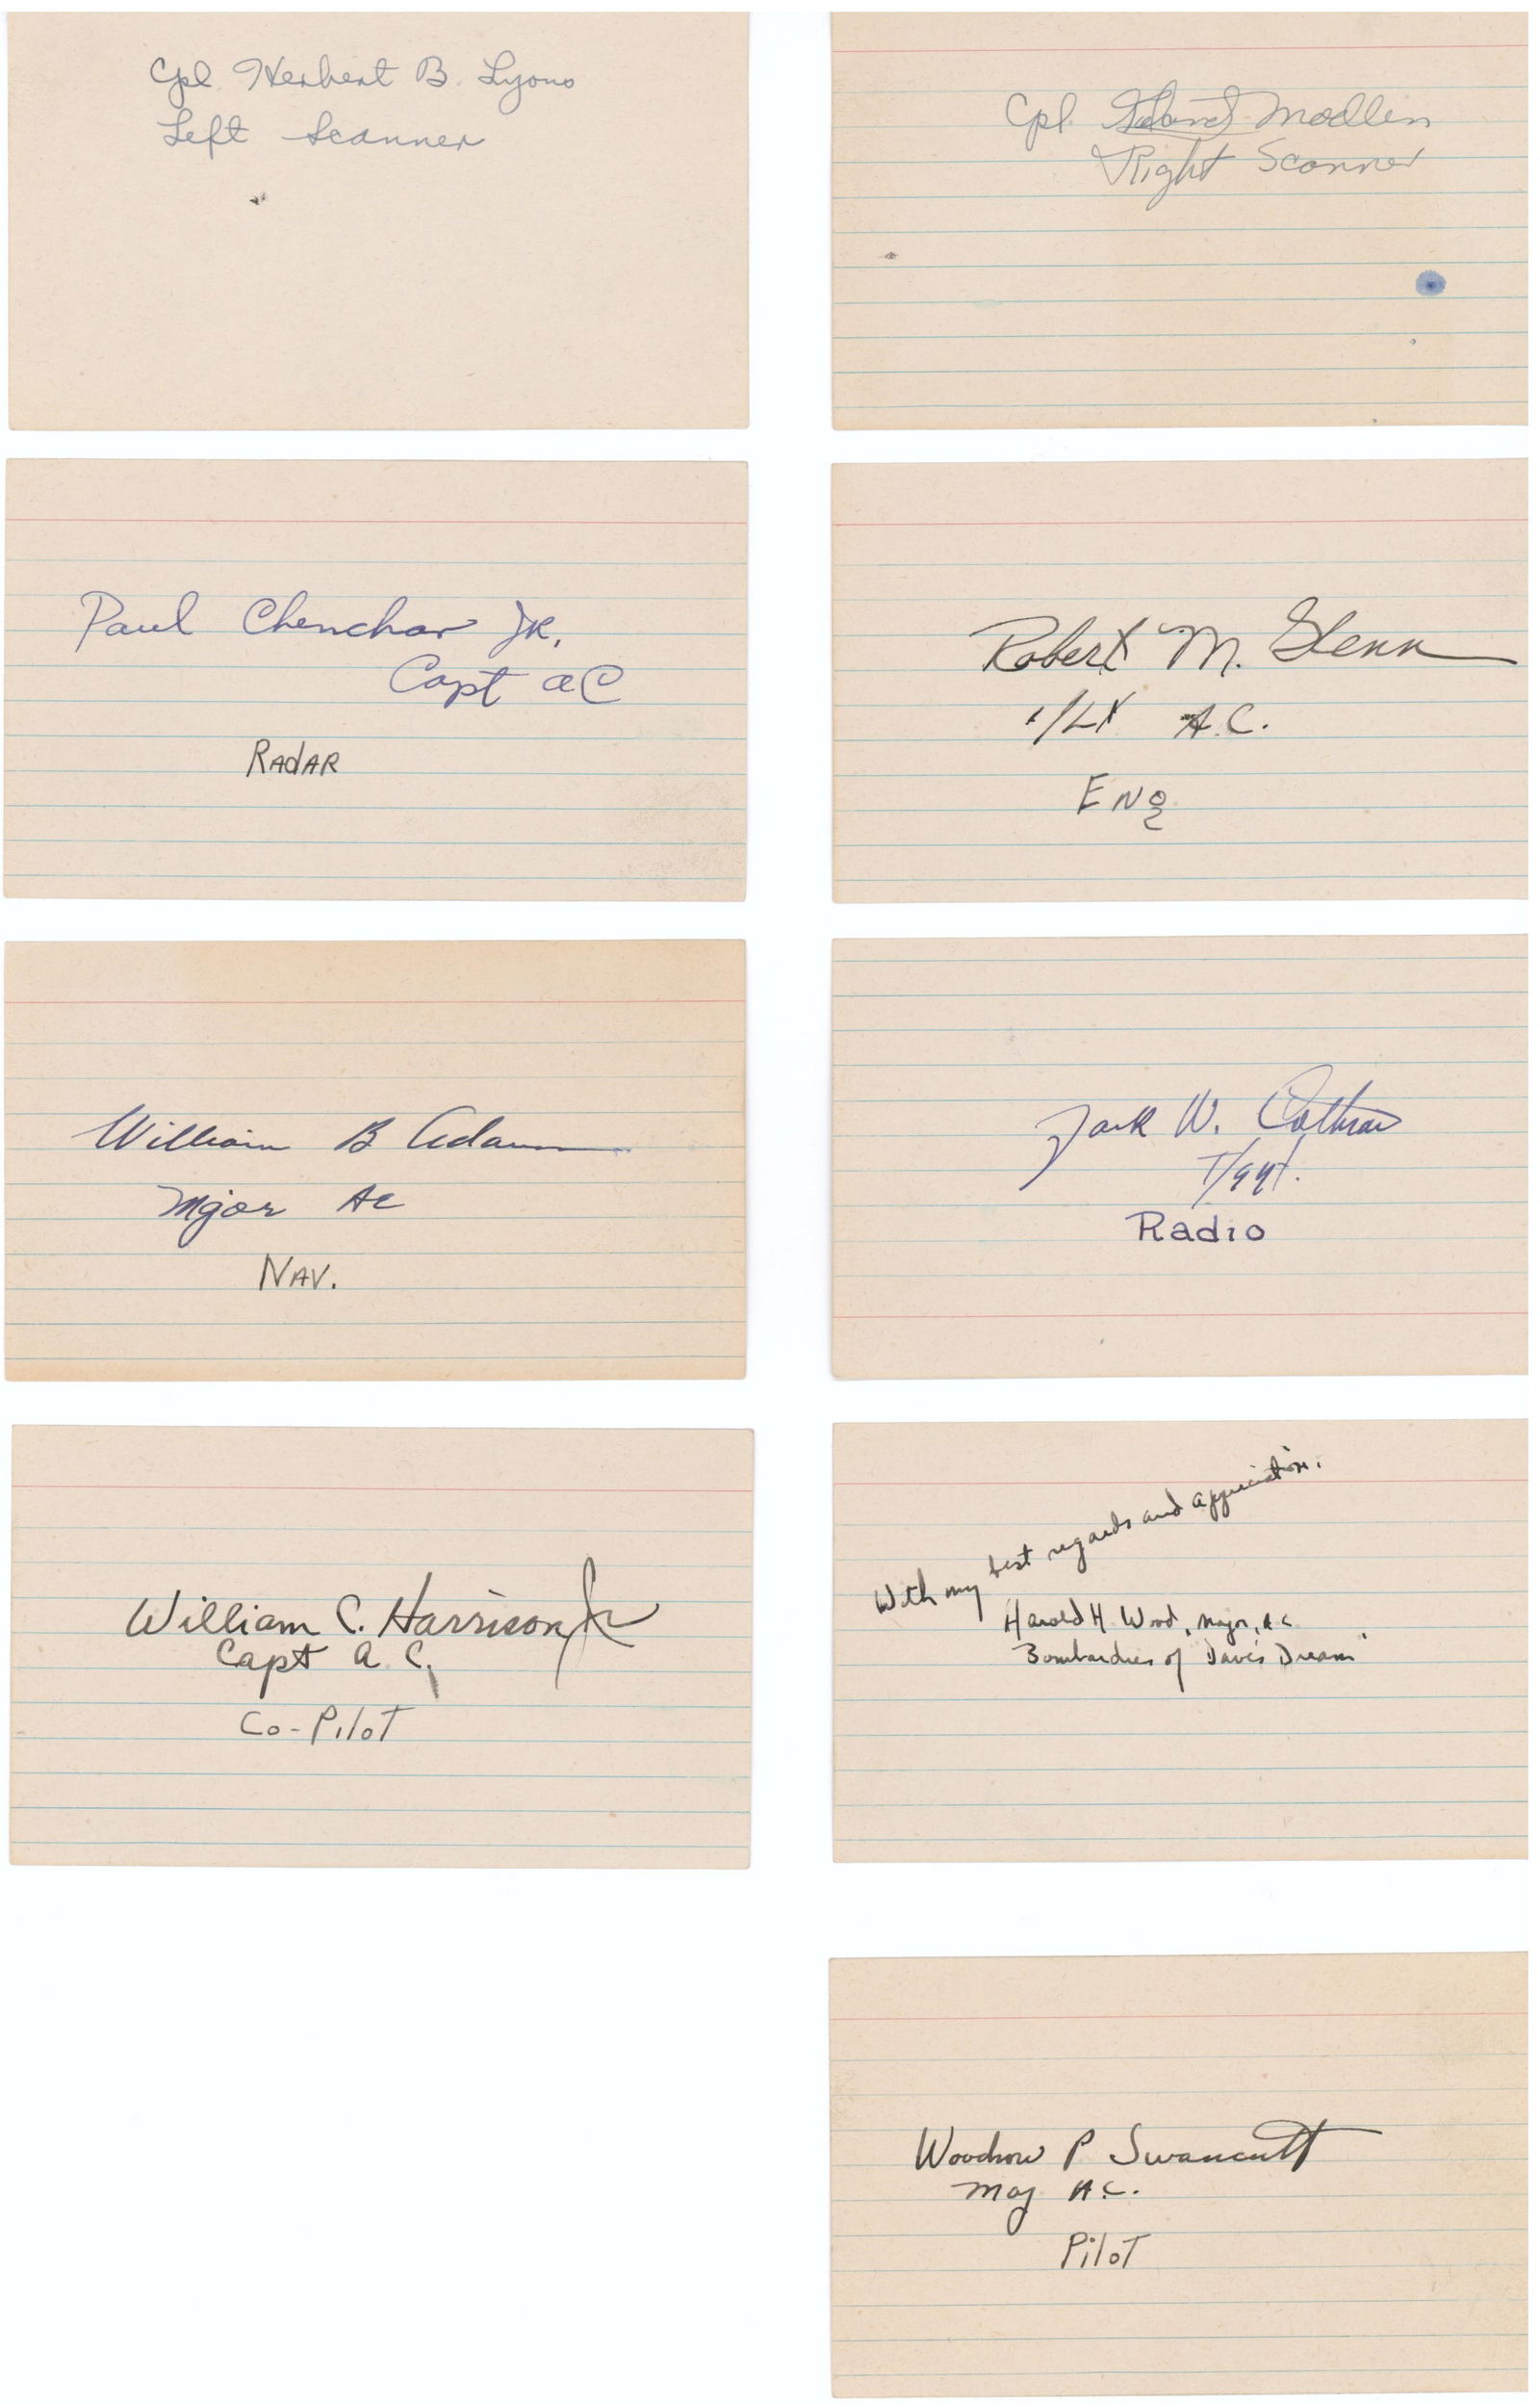 Cpl. Herbert B. Lyons
Left Scanner
Cpl. Roland Modlin
Right Scanner
Paul Chenchar JR.
Capt AC
RAdAR
Robert M. Glenn
1/Lt A.C.
ENg
William B Adams
Major AC
NAV.
Jack W. Cothran
T/Sgt.
Radio
William C. Harrison, Jr
Capt A.C.
Co-Pilot
With my best regards and appreciation.
Harold H. Wood, Major, A.C.
Bombardier of Dave's Dream
Woodrow P Swancutt
Maj A.C.
Pilot